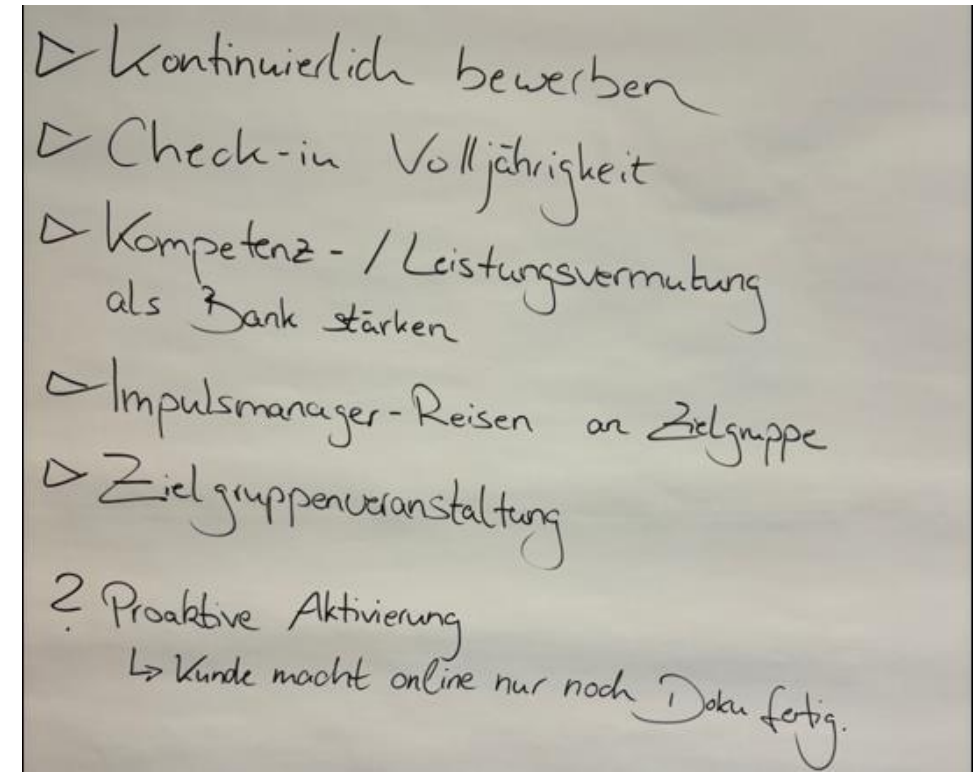 ▷ Kontinuierlich bewerben
▷ Check-in Volljährigkeit
▷ Kompetenz- / Leistungsvermutung
als Bank stärken
▷ Impulsmanager-Reisen an Zielgruppe
▷ Zielgruppenveranstaltung
? Proaktive Aktivierung
↳ Kunde macht online nur noch Doku fertig.